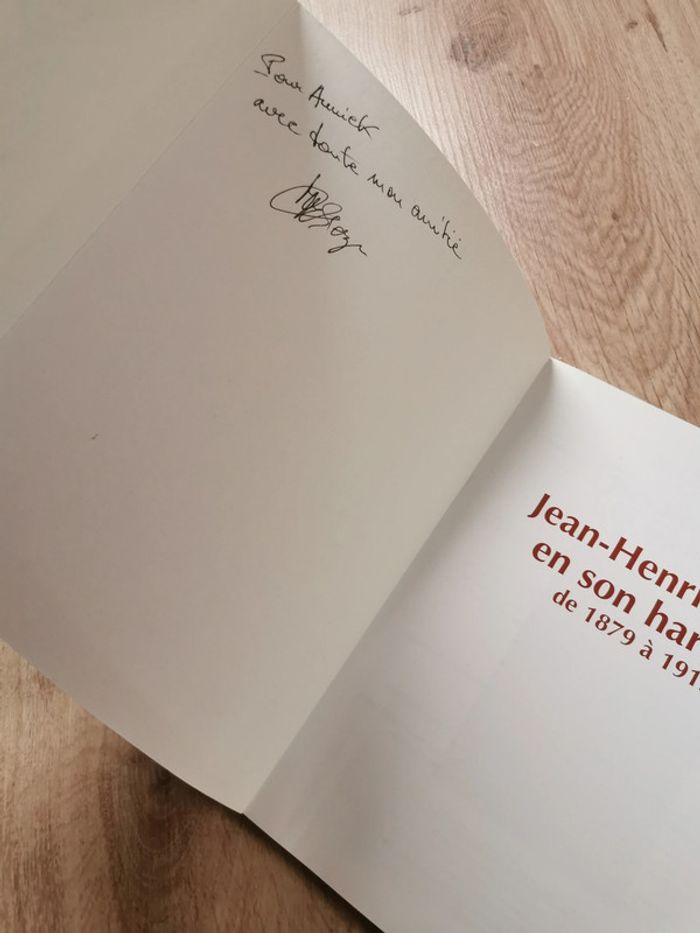 Pour Annick
avec toute mon amitié
Jean-Henri
en son har
de 1879 à 191